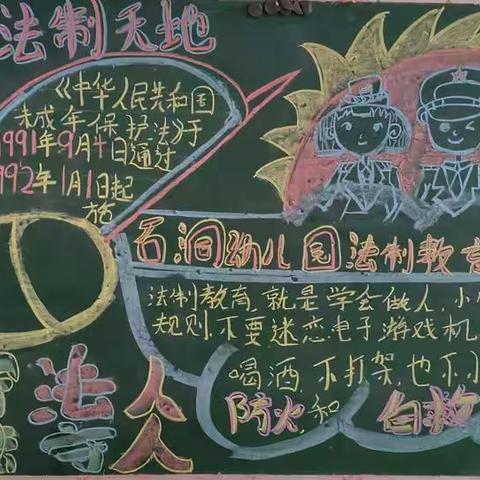 法制天地
《中华人民共和国
未成年保护法》于
1991年9月4日通过
1992年1月1日起
施
石洞幼儿园法制教育
法制教育，就是学会做人，小
规则，不要迷恋电子游戏机
喝酒，不打架，也不
防火和自救
法人
守人